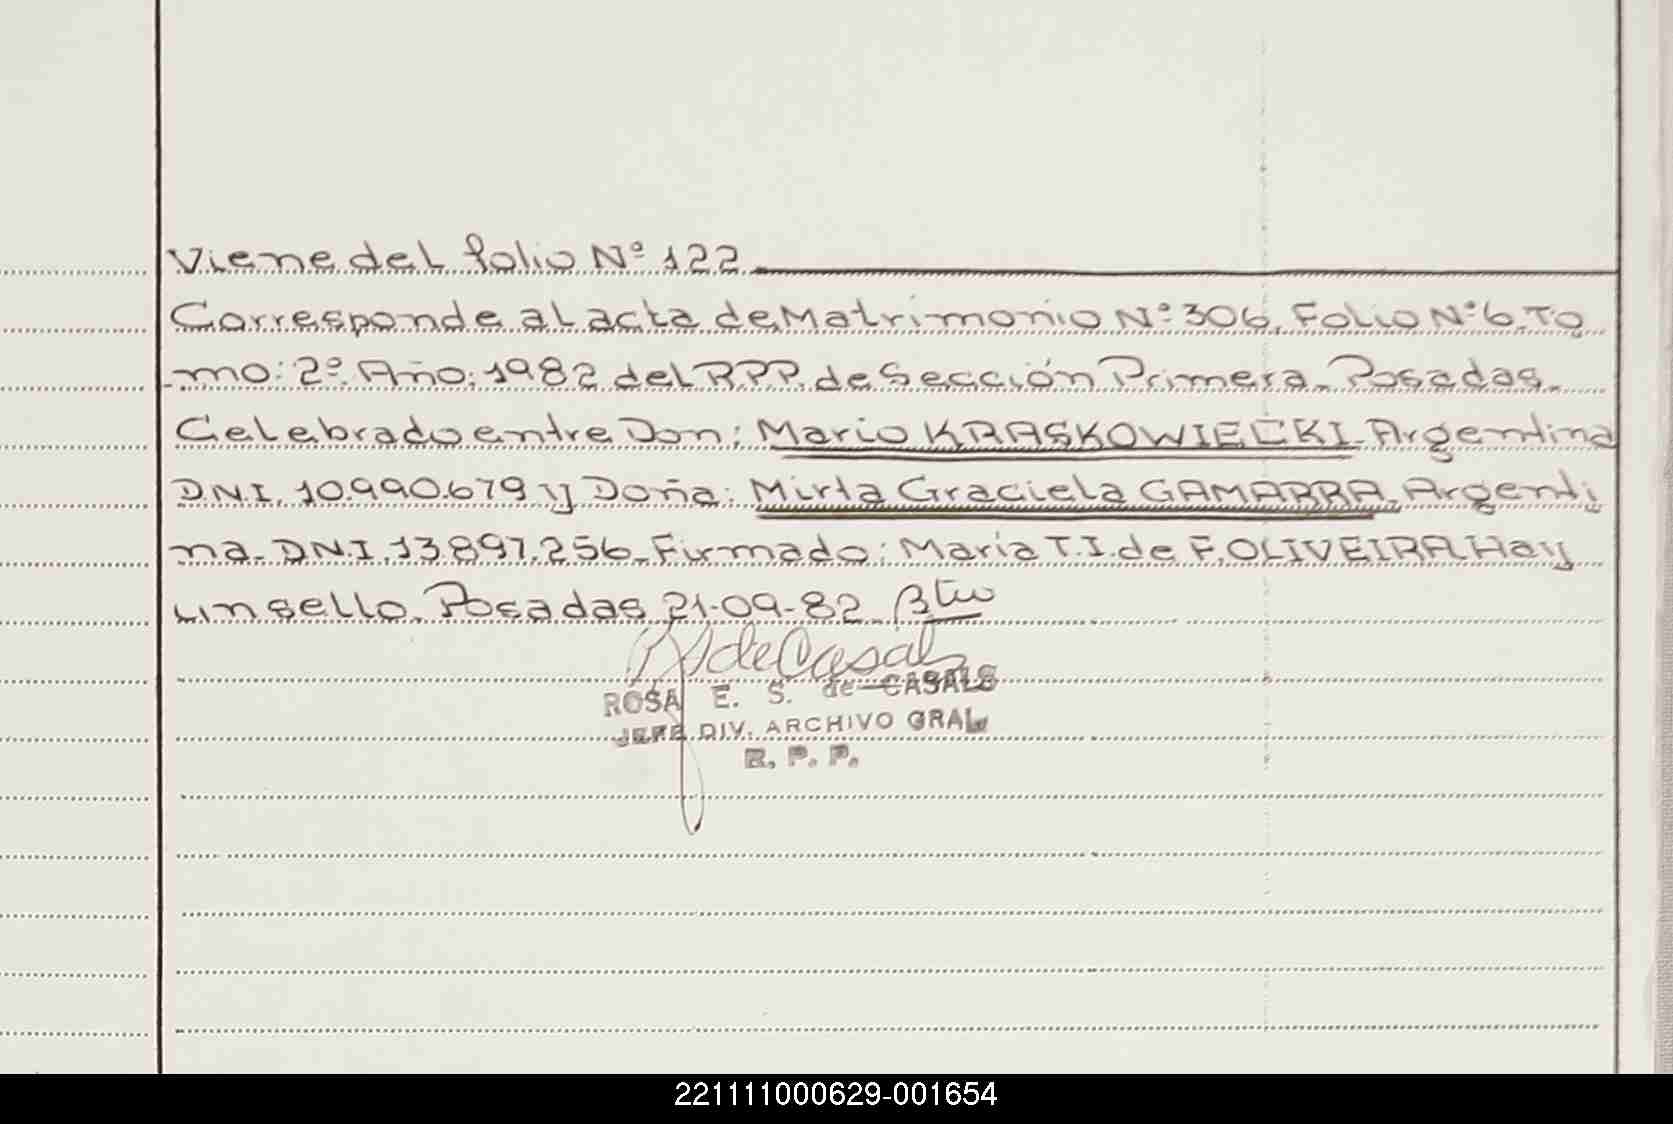 Viene del folio Nº 122
Corresponde al acta de Matrimonio Nº 306, Folio Nº 6. To
mo: 2º. Año: 1982 del R.P.P. de Sección Primera. Posadas.
Celebrado entre Don: Mario KRASKOWIECKI. Argentina
D.N.I. 10.990.679 y Doña: Mirta Graciela GAMARRA. Argenti
na. D.N.I. 13.897.256. Firmado: María T.I. de F. OLIVEIRA. Hay
un sello. Posadas 21-09-82.
de Casals
ROSA E. S. de CASALS
JEFE DIV. ARCHIVO GRAL
R. P. P.
221111000629-001654